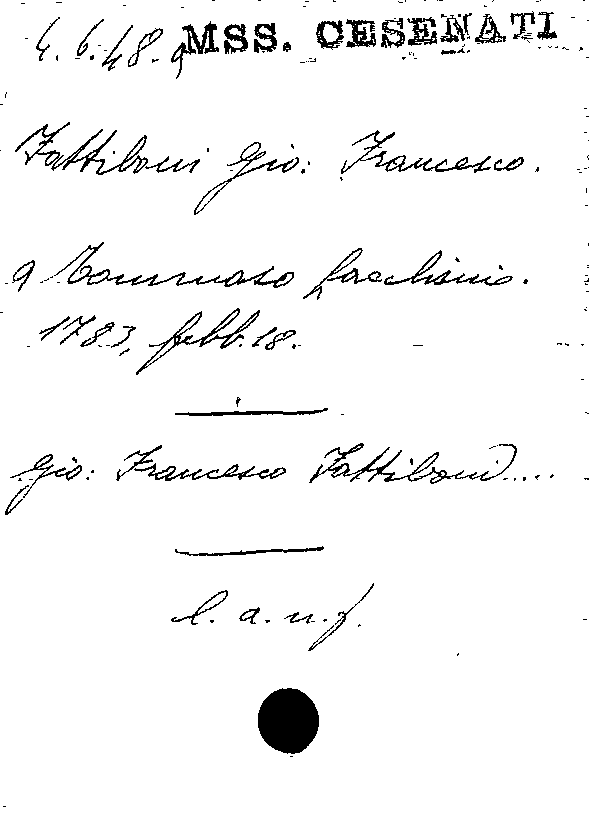 4.6.48.a MSS. CESENATI
Fattiboni Gio: Francesco.
a Tommaso Facchinio.
1783, febb. 18.
Gio: Francesco Fattiboni....
l. a. n. f.